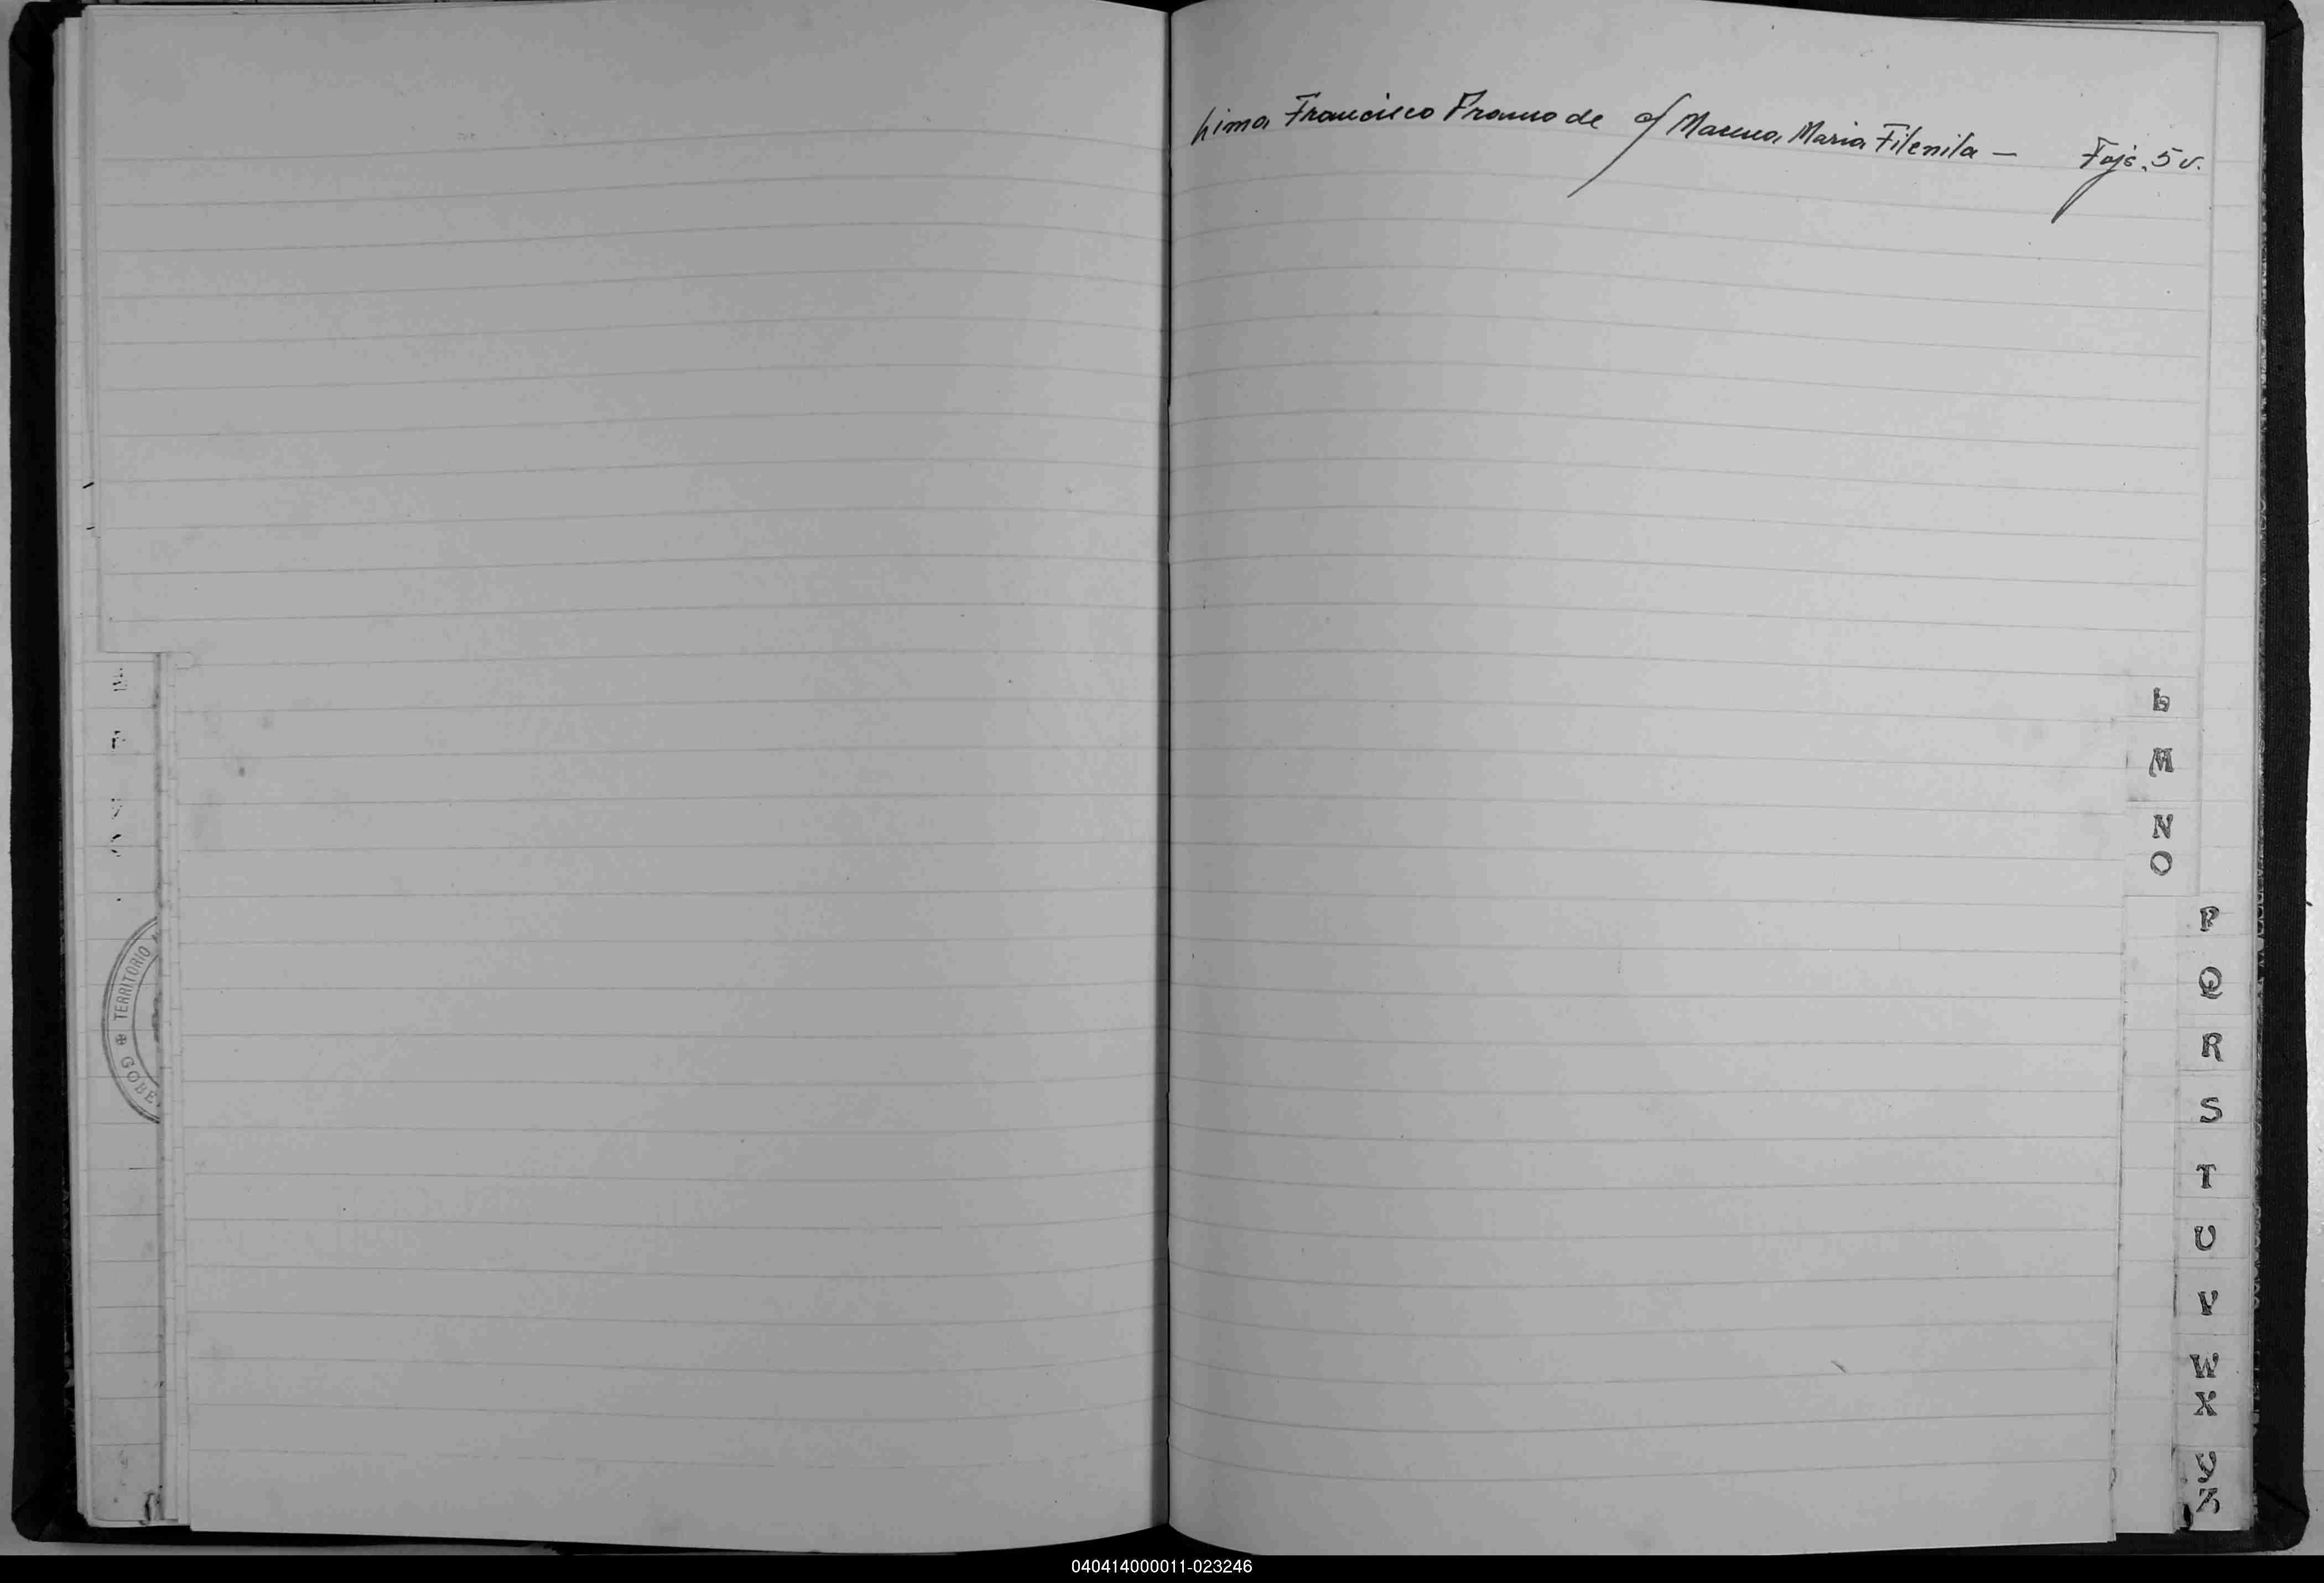 Lima Francisco Pramo de c/ Macua Maria Filenila — Fojs. 5 v.
L
M
N
O
P
Q
R
S
T
U
V
W
X
Y
Z
TERRITORIO
040414000011-023246